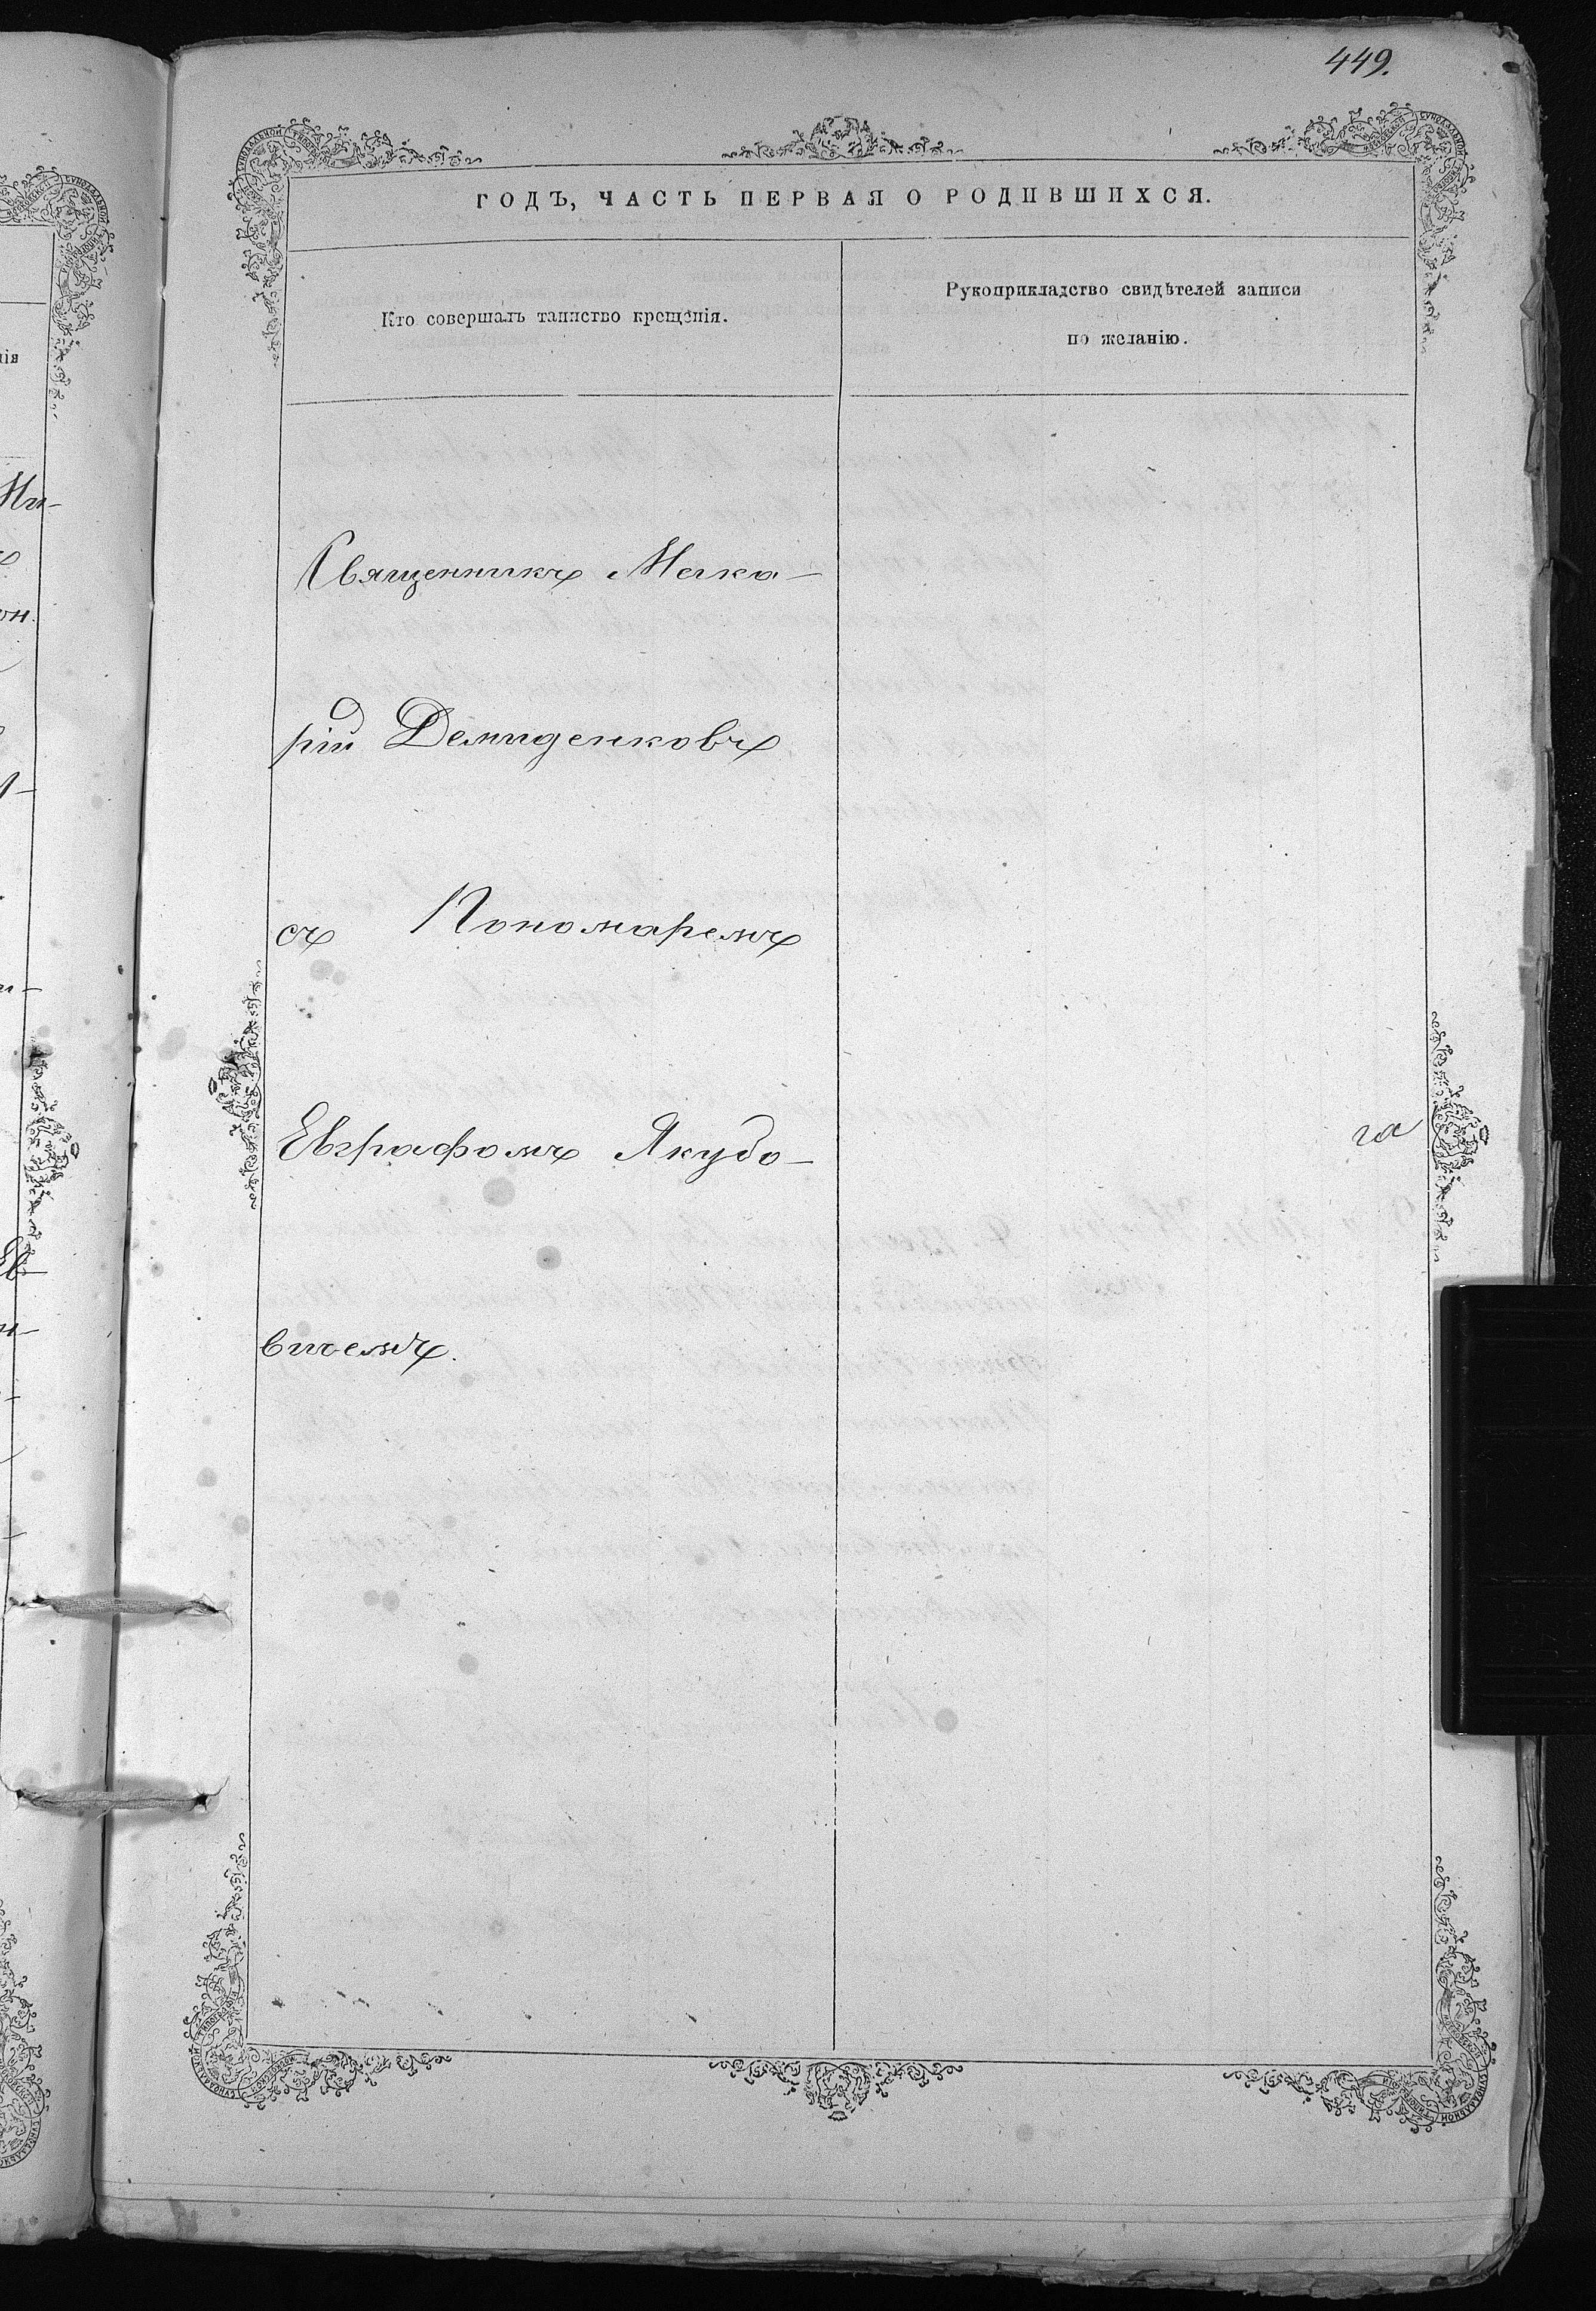 449.
ГОДЪ, ЧАСТЬ ПЕРВАЯ О РОДИВШИХСЯ.
Кто совершалъ таинство крещенія.
Рукоприкладство свидѣтелей записи
по желанію.
Священникъ Мака-
рій Демиденковъ
съ Пономаремъ
Евграфомъ Якубо-
вичемъ.
га